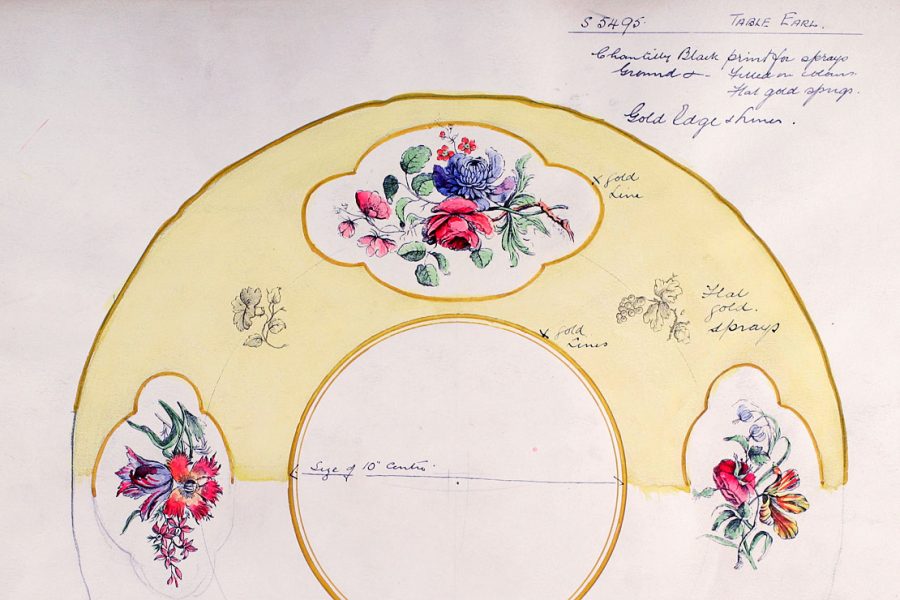 S 5495. TABLE EARL.
Chantilly Black print for sprays
Ground & - Filled in colours.
Flat gold sprigs.
Gold Edge & lines.
x gold
Line
Flat
gold.
sprays
x gold
Lines
Size of 10" Centre.